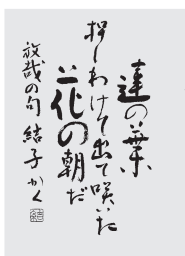 蓮の葉
押しわけて出て咲いた
花の朝だ
放哉の句 結子かく